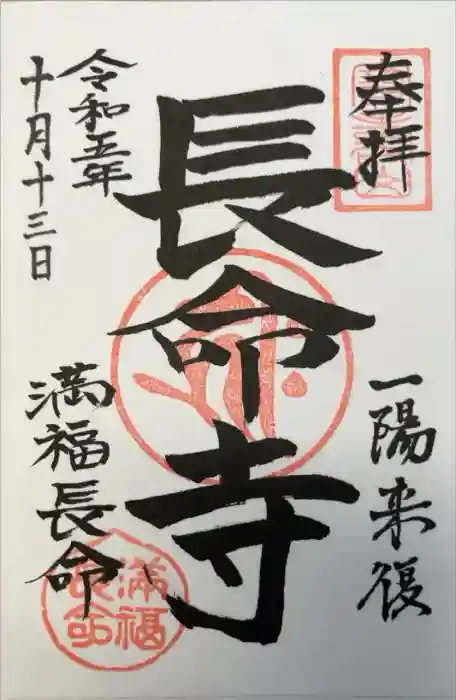 奉拝
一陽来復
長命寺
令和五年
十月十三日
満福長命
満福
長命